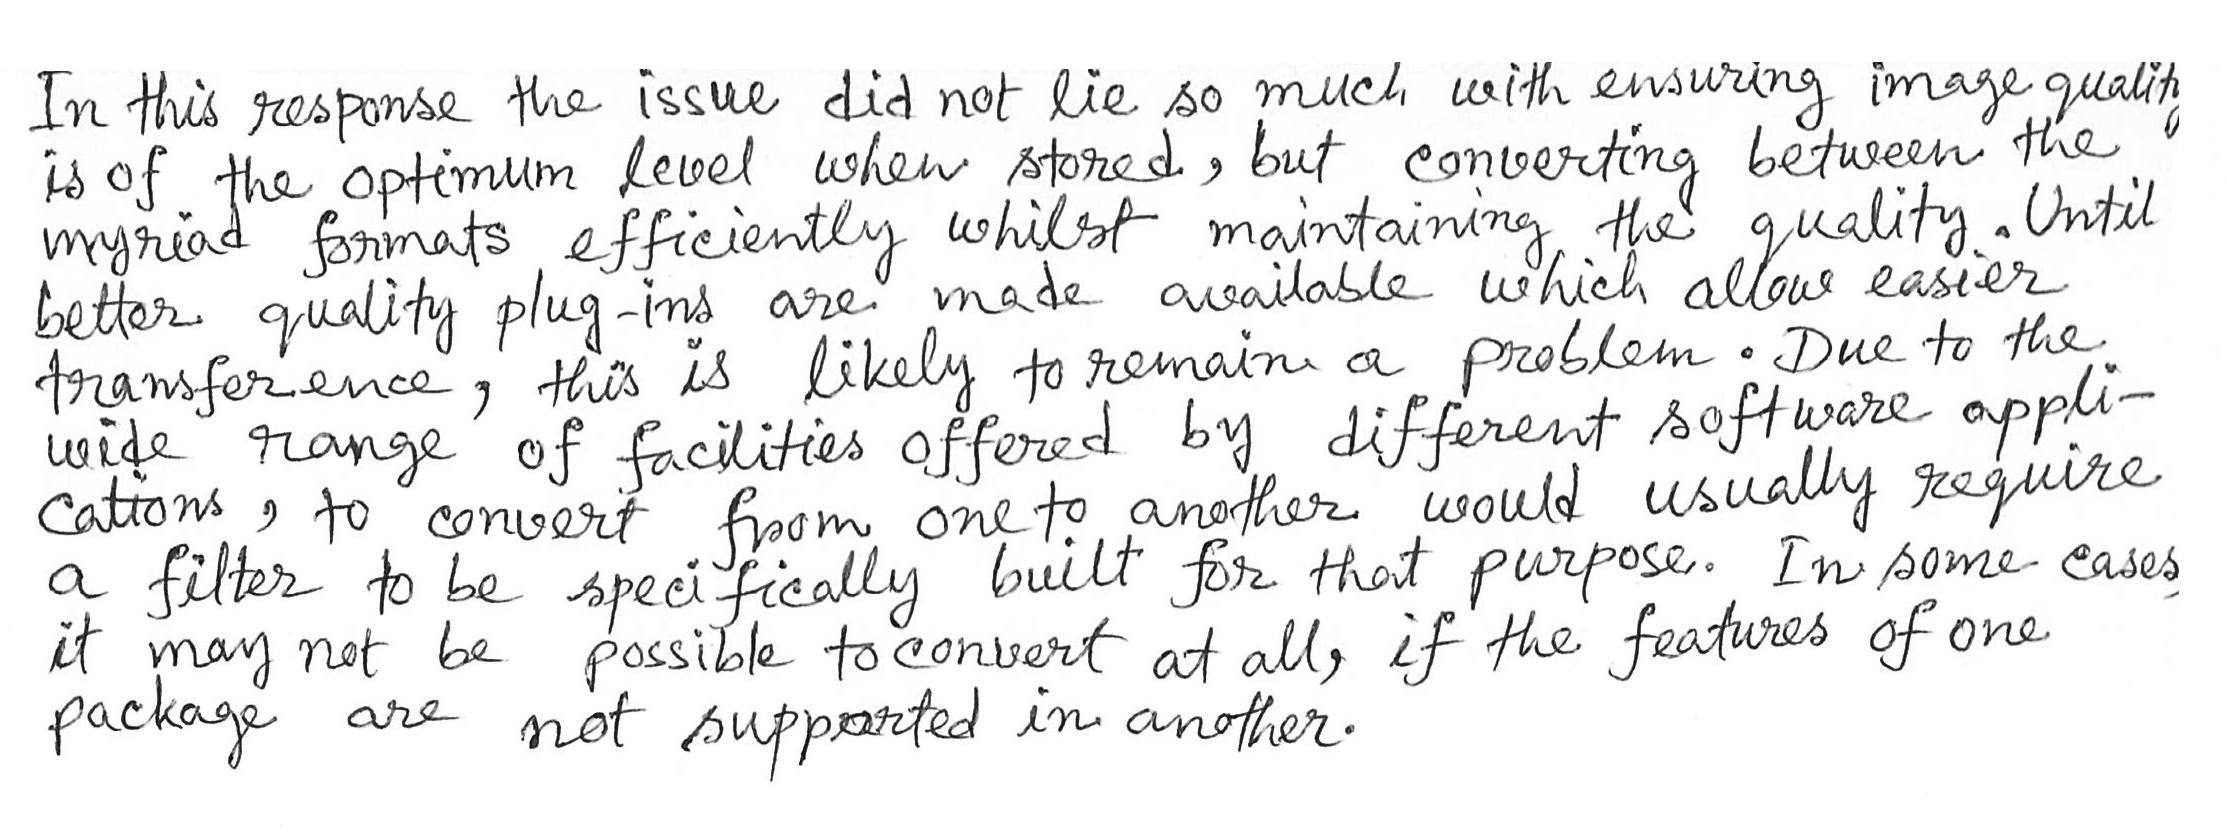 In this response the issue did not lie so much with ensuring image quality
is of the optimum level when stored, but converting between the
myriad formats efficiently whilst maintaining the quality. Until
better quality plug-ins are made available which allow easier
transference, this is likely to remain a problem. Due to the
wide range of facilities offered by different software appli-
cations, to convert from one to another would usually require
a filter to be specifically built for that purpose. In some cases
it may not be possible to convert at all, if the features of one
package are not supported in another.